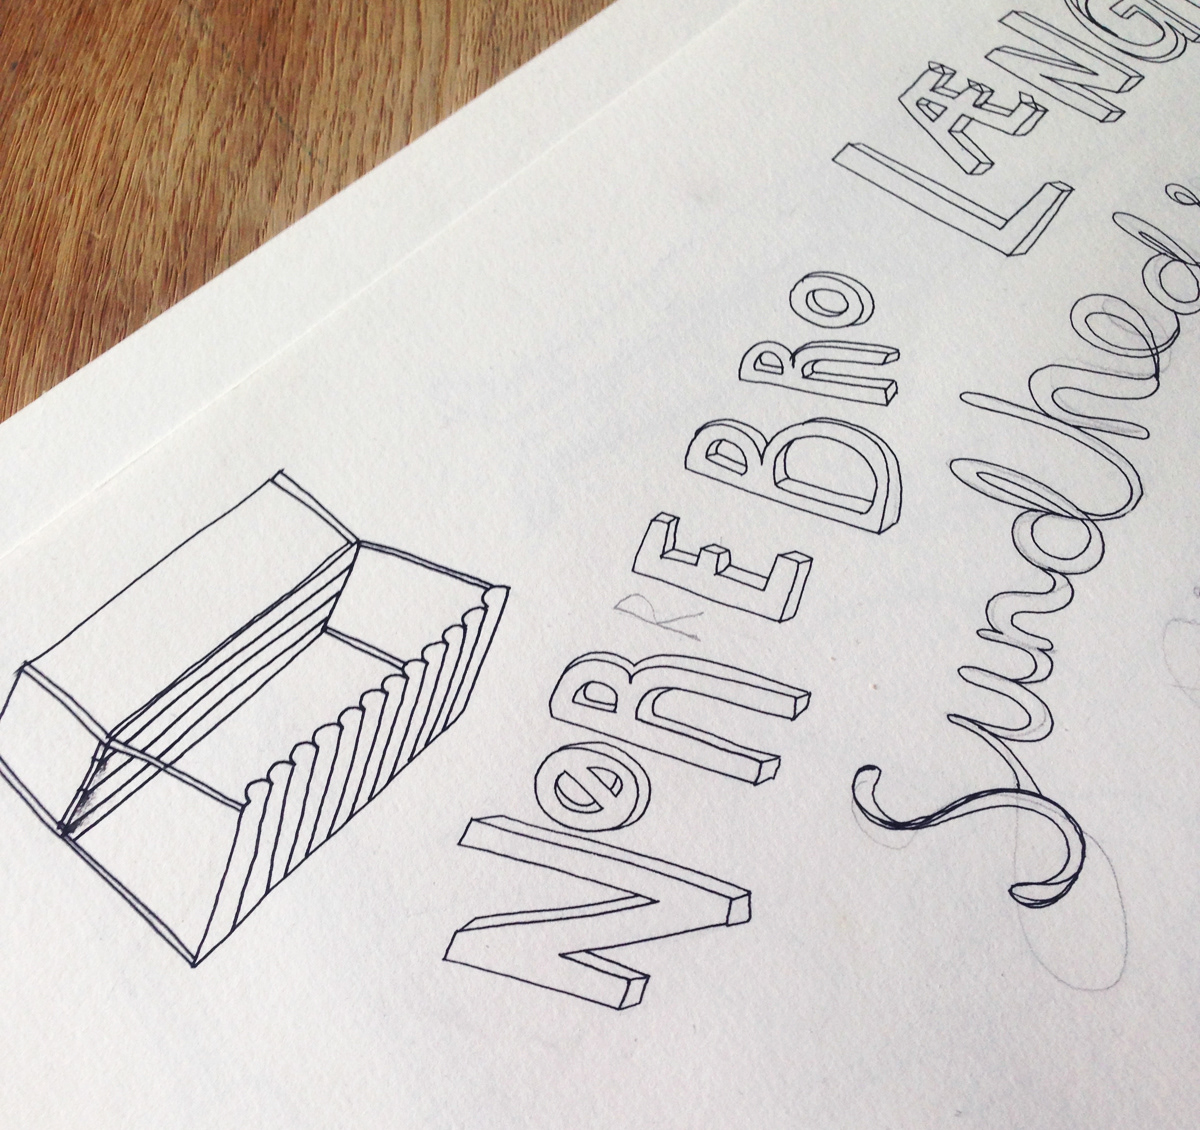 NøRREBRo LÆNG
Sundhed